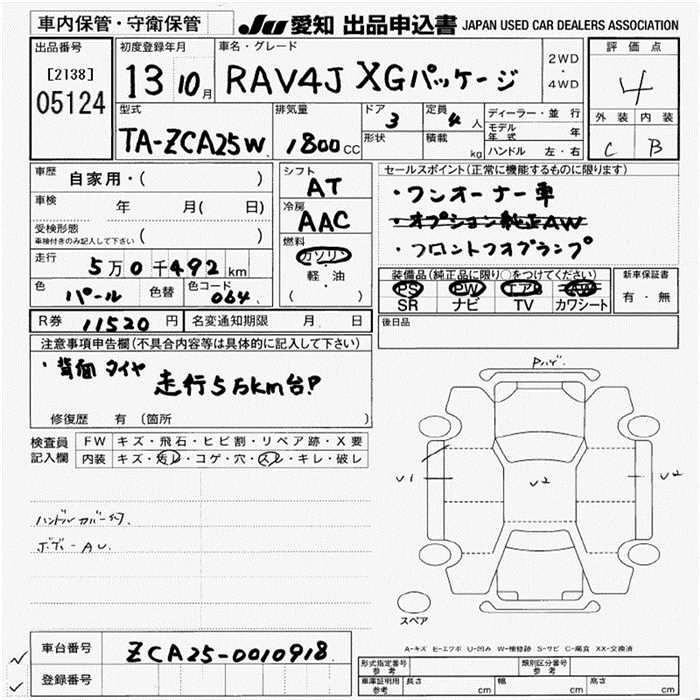 車内保管・守衛保管
JU 愛知 出品申込書 JAPAN USED CAR DEALERS ASSOCIATION
出品番号
[2138]
05124
初度登録年月
13 10月
車名・グレード
RAV4J XGパッケージ
2WD
・
4WD
評価点
4
外装 内装
C B
型式
TA-ZCA25W
排気量
1800cc
ドア
3
形状
定員
4人
積載
kg
ディーラー・並行
モデル年式 年
ハンドル 左・右
車歴 自家用・( )
車検 年 月( 日)
受検形態
車検付きのみ記入して下さい ( )
走行 5万0千492km
色 パール 色替 色コード 064
シフト
AT
冷房
AAC
燃料
ガソリン
軽・油
( )
セールスポイント(正常に機能するものに限ります)
・ワンオーナー車
・オプション純正AW
・フロントフォグランプ
装備品(純正品に限り○をつけてください)
PS PW エアB AW
SR ナビ TV カワシート
新車保証書
有・無
R券 11520円 名変通知期限 月 日
後日品
注意事項申告欄(不具合内容等は具体的に記入して下さい)
・背面タイヤ
走行5万km台P
修復歴 有 (箇所 )
検査員
記入欄
FW キズ・飛石・ヒビ割・リペア跡・X要
内装 キズ・汚レ・コゲ・穴・スレ・キレ・破レ
ハンドルカバー付
ボデーAU
U1 U2 U2
スペア
A-キズ E-エクボ U-凹み W-補修跡 S-サビ C-腐食 XX-交換済
車台番号 ZCA25-0010918
登録番号
形式指定番号
参考
類別区分番号
参考
車庫証明用
参考
長さ cm 幅 cm 高さ cm